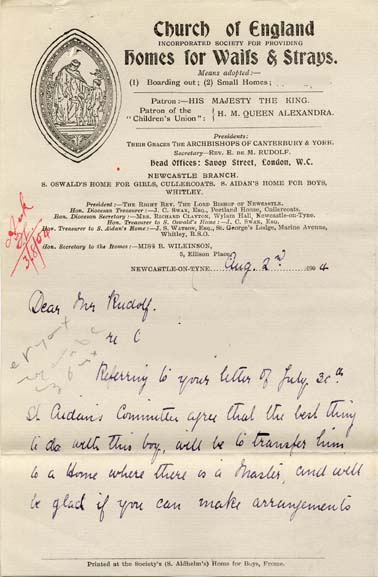 Church of England
INCORPORATED SOCIETY FOR PROVIDING
Homes for Waifs & Strays.
Means adopted:—
(1) Boarding out; (2) Small Homes;
Patron:—HIS MAJESTY THE KING.
Patron of the "Children's Union": } H. M. QUEEN ALEXANDRA.
Presidents:
THEIR GRACES THE ARCHBISHOPS OF CANTERBURY & YORK.
Secretary—REV. E. DE M. RUDOLF.
Head Offices: Savoy Street, London, W.C.
NEWCASTLE BRANCH.
S. OSWALD'S HOME FOR GIRLS, CULLERCOATS. S. AIDAN'S HOME FOR BOYS,
WHITLEY.
President:—THE RIGHT REV. THE LORD BISHOP OF NEWCASTLE.
Hon. Diocesan Treasurer:—J. C. SWAN, ESQ., Portland House, Cullercoats.
Hon. Diocesan Secretary:—MRS. RICHARD CLAYTON, Wylam Hall, Newcastle-on-Tyne.
Hon. Treasurer to S. Oswald's Home:—J. C. SWAN, ESQ.
Hon. Treasurer to S. Aidan's Home:—J. S. WATSON, ESQ., St. George's Lodge, Marine Avenue,
Whitley, R.S.O.
Hon. Secretary to the Homes:—MISS B. WILKINSON,
5, Ellison Place,
NEWCASTLE-ON-TYNE, Aug. 2nd 1904
3/8/04
Dear Mr Rudolf.
re C
Referring to your letter of July 30th
St Aidan's Committee agree that the best thing
to do with this boy, will be to transfer him
to a Home where there is a Master, and will
be glad if you can make arrangements
Printed at the Society's (S. Aldhelm's) Home for Boys, Frome.